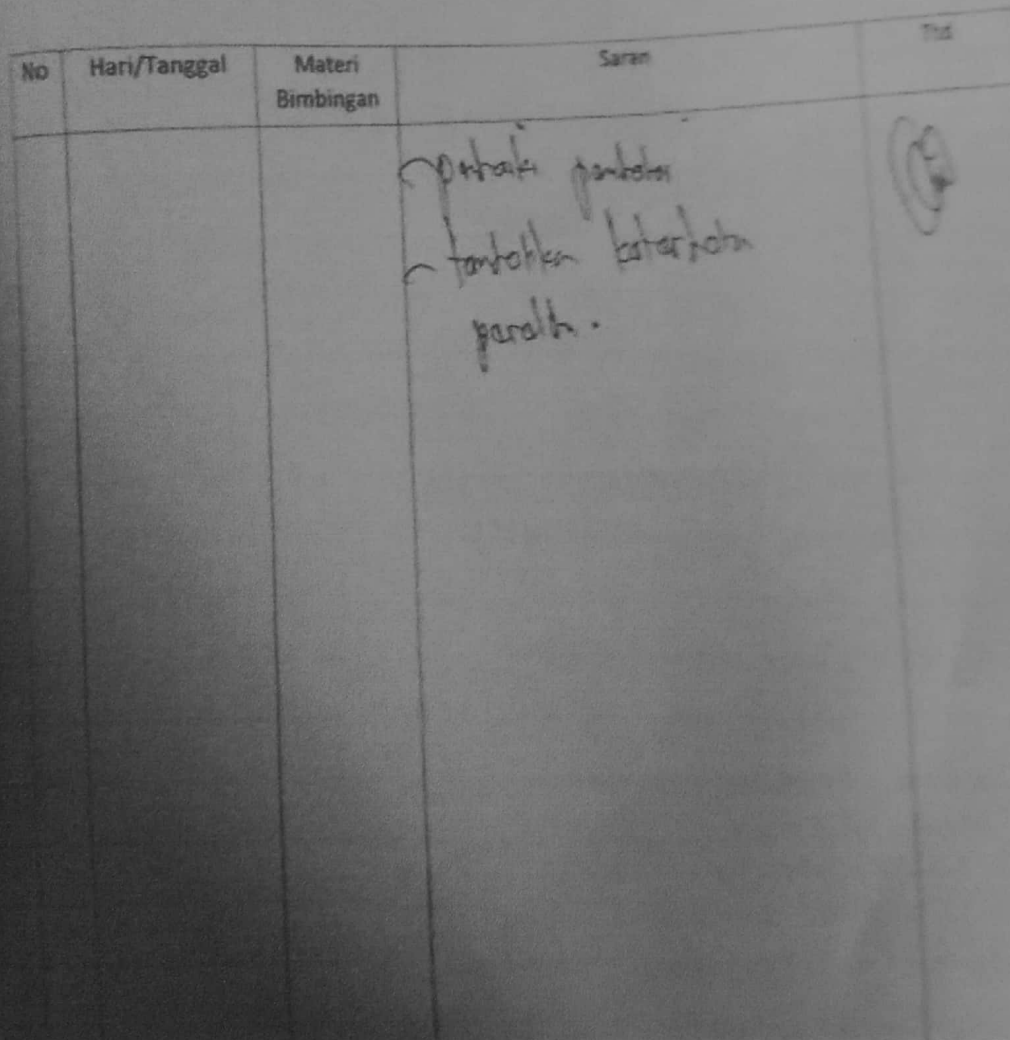 No Hari/Tanggal Materi Bimbingan Saran Ttd
- perbaiki pembahasan
- tambahkan keterbatasan